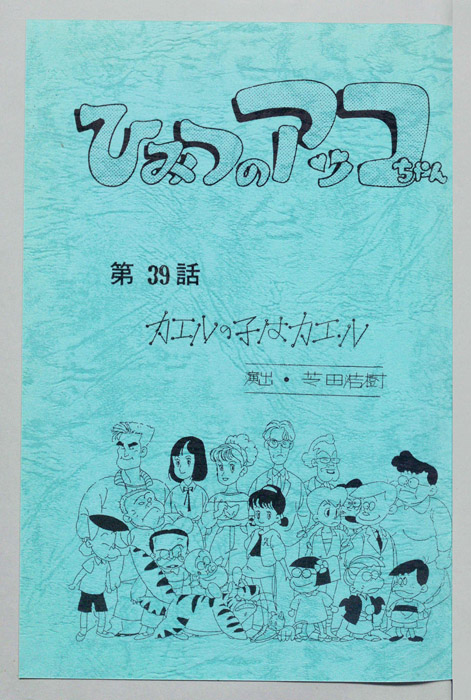 ひみつのアッコちゃん
第 39 話
カエルの子はカエル
演出・芝田浩樹